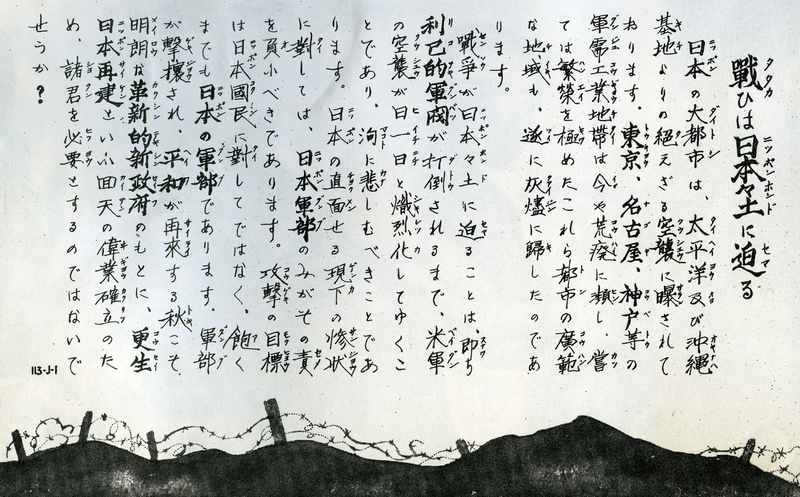 戰ひは日本々土に迫る
日本の大都市は、太平洋及び沖繩
基地よりの絕えざる空襲に曝されて
おります。東京、名古屋、神戶等の
軍需工業地帶は今や荒廢に頻し、嘗
ては繁榮を極めたこれら都市の廣範
な地域も、遂に灰燼に歸したのであ
ります。
戰爭が日本々土に迫ることは、卽ち
利己的軍閥が打倒されるまで、米軍
の空襲が日一日と熾烈化してゆくこ
とであり、洵に悲しむべきことであ
ります。日本の直面せる現下の慘狀
に對しては、日本軍部のみがその責
を負ふべきであります。攻擊の目標
は日本國民に對してではなく、飽く
までも日本の軍部であります。軍部
が擊攘され、平和が再來する秋こそ、
明朗な革新的新政府のもとに、更生
日本再建といふ回天の偉業確立のた
め、諸君を必要とするのではないで
せうか?
113-J-1